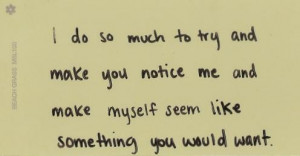 I do so much to try and
make you notice me and
make myself seem like
something you would want.